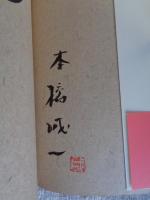 本橋成一